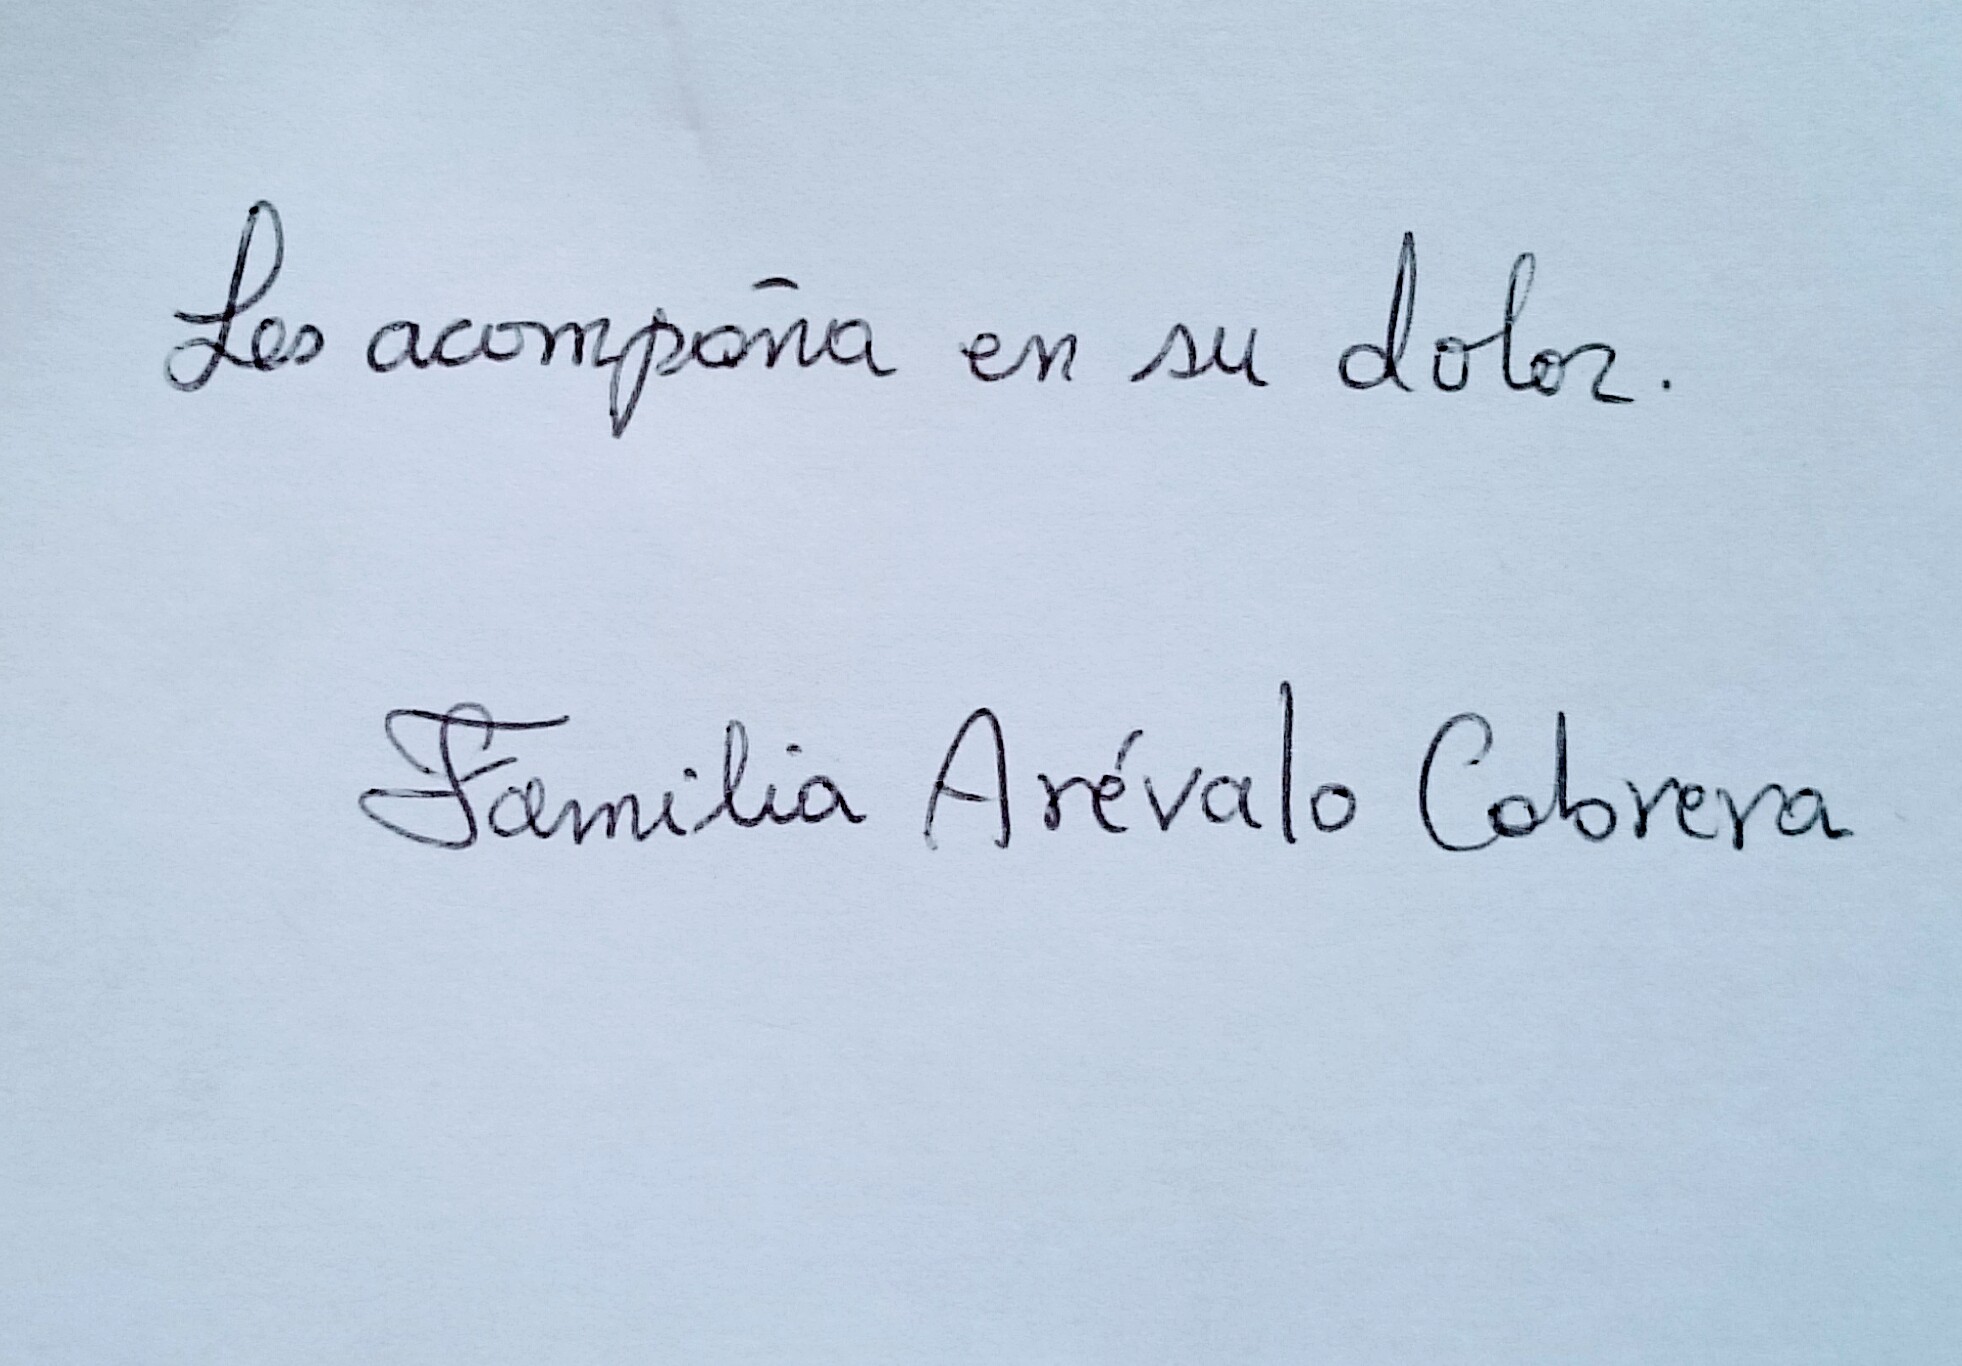 Les acompaña en su dolor.
Familia Arévalo Cabrera